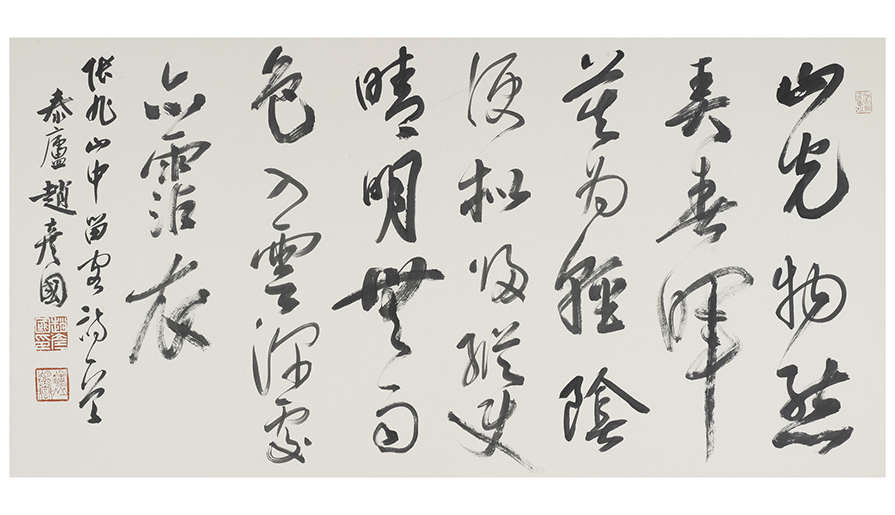 山光物態
弄春暉
莫為輕陰
便擬歸縱使
晴明無雨
色入雲深處
亦霑衣
張旭山中留客詩一首
泰廬趙彥國